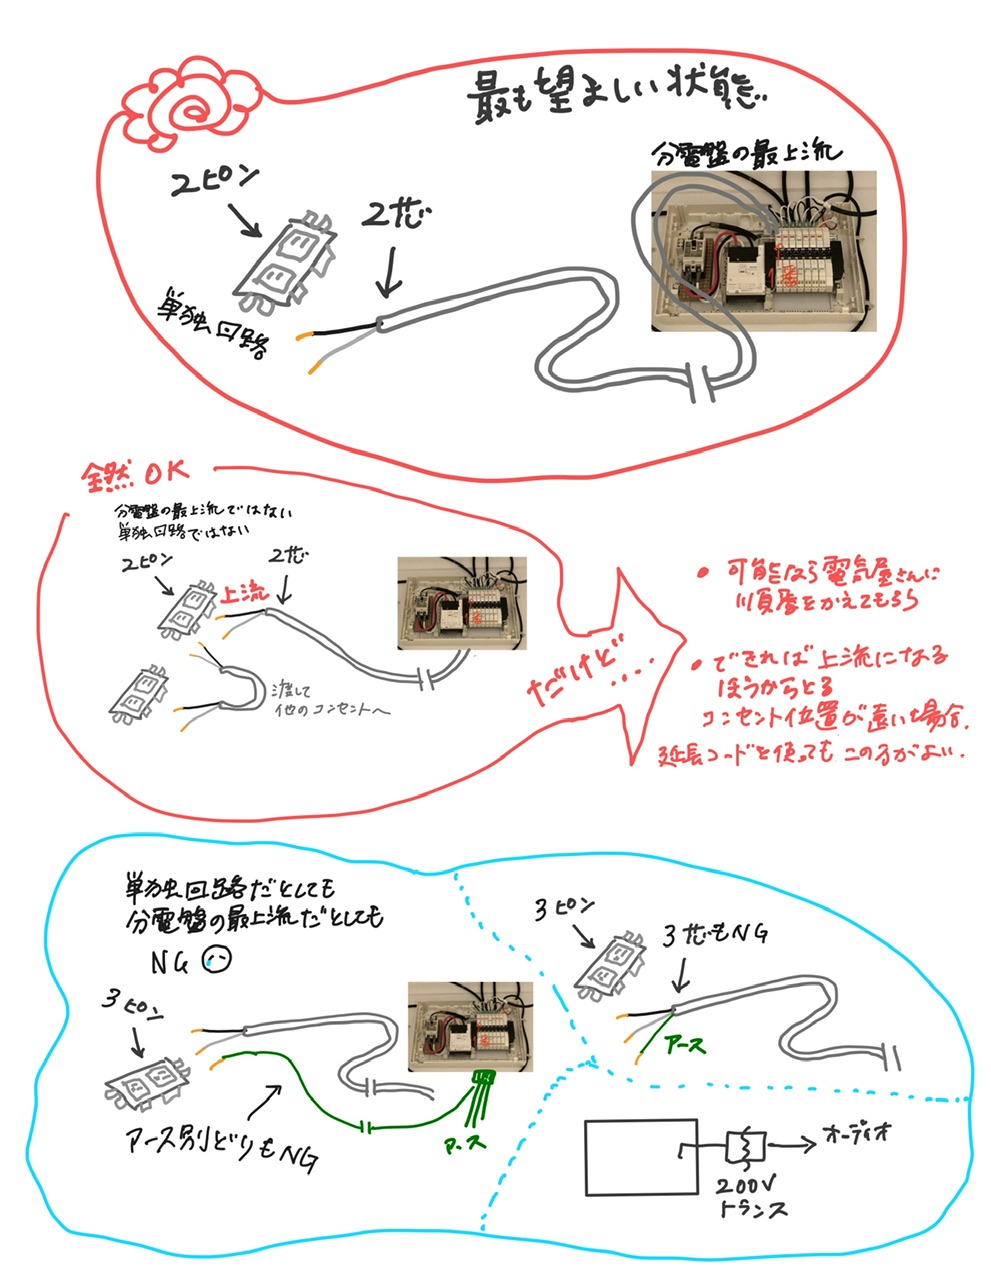 最も望ましい状態
分電盤の最上流
2ピン
2芯
単独回路
全然OK
分電盤の最上流ではない
単独回路ではない
2ピン
2芯
上流
渡して
他のコンセントへ
だけど・・・・
• 可能なら電気屋さんに
順番をかえてもらう
• できれば上流になる
ほうからとる
コンセント位置が遠い場合、
延長コードを使ってもこの方がよい.
単独回路だとしても
分電盤の最上流だとしても
NG
3ピン
アース別どりもNG
アース
3ピン
3芯もNG
アース
オーディオ
200V
トランス